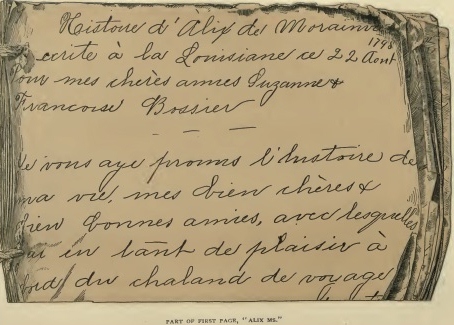 Histoire d'Alix de Morainville
ecrite à la Louisiane ce 22 Aout 1795
Pour mes chères amies Suzanne &
Francoise Bossier
Je vous aye promis l'histoire de
ma vie, mes bien chères &
bien bonnes amies, avec lesquelles
eu en tant de plaisir à
bord du chaland de voyage
PART OF FIRST PAGE, "ALIX MS."